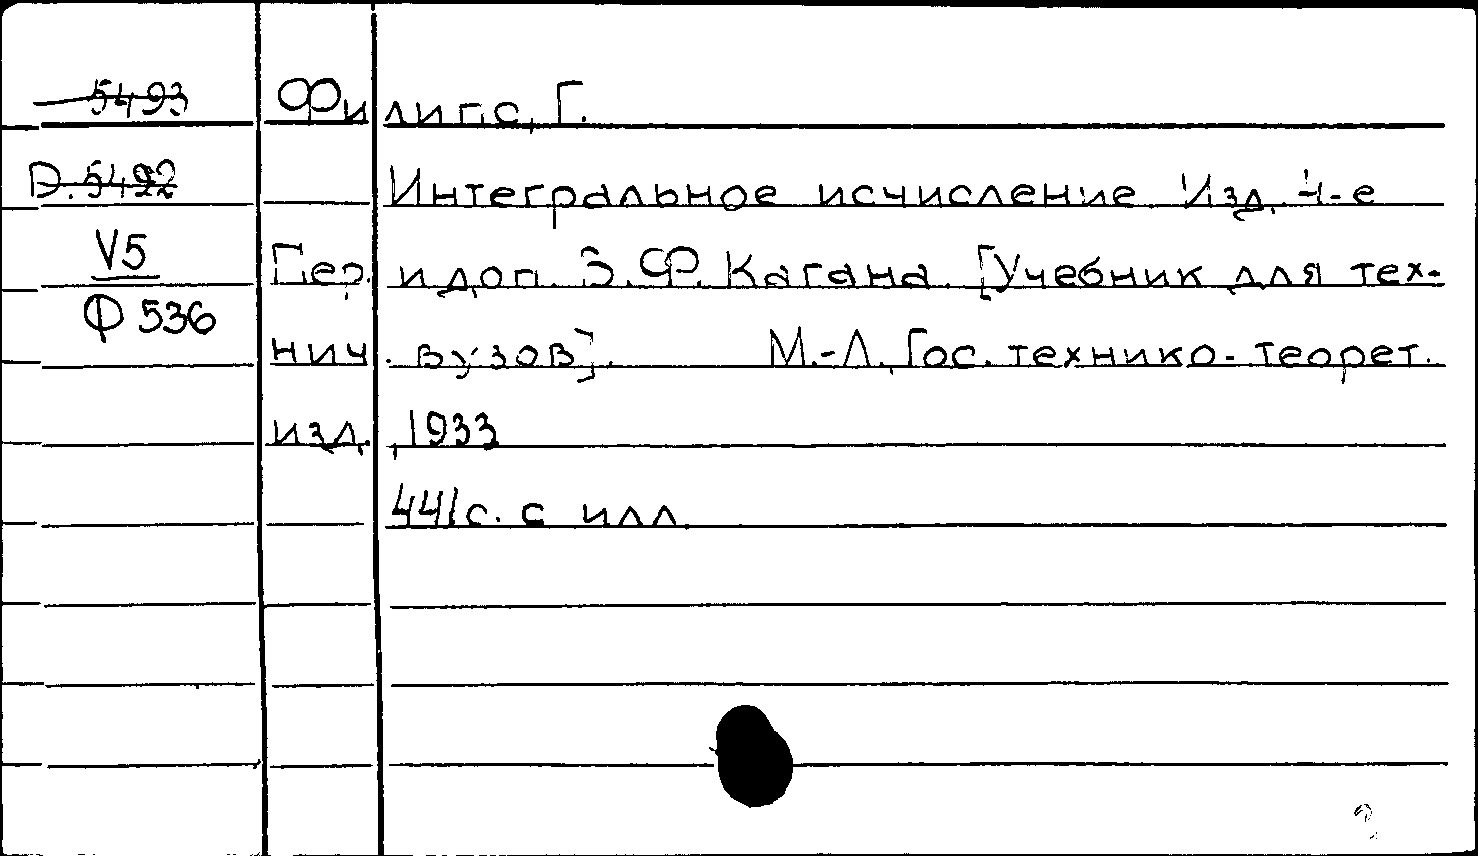 5493
Филипс, Г.
D. 5492
Интегральное исчисление. Изд. 4-е
V5
Пер. и доп. З.Ф. Кагана. [Учебник для тех-
Ф 536
нич. вузов]. М.-Л., Гос. технико-теорет.
изд., 1933
441 с. с илл.